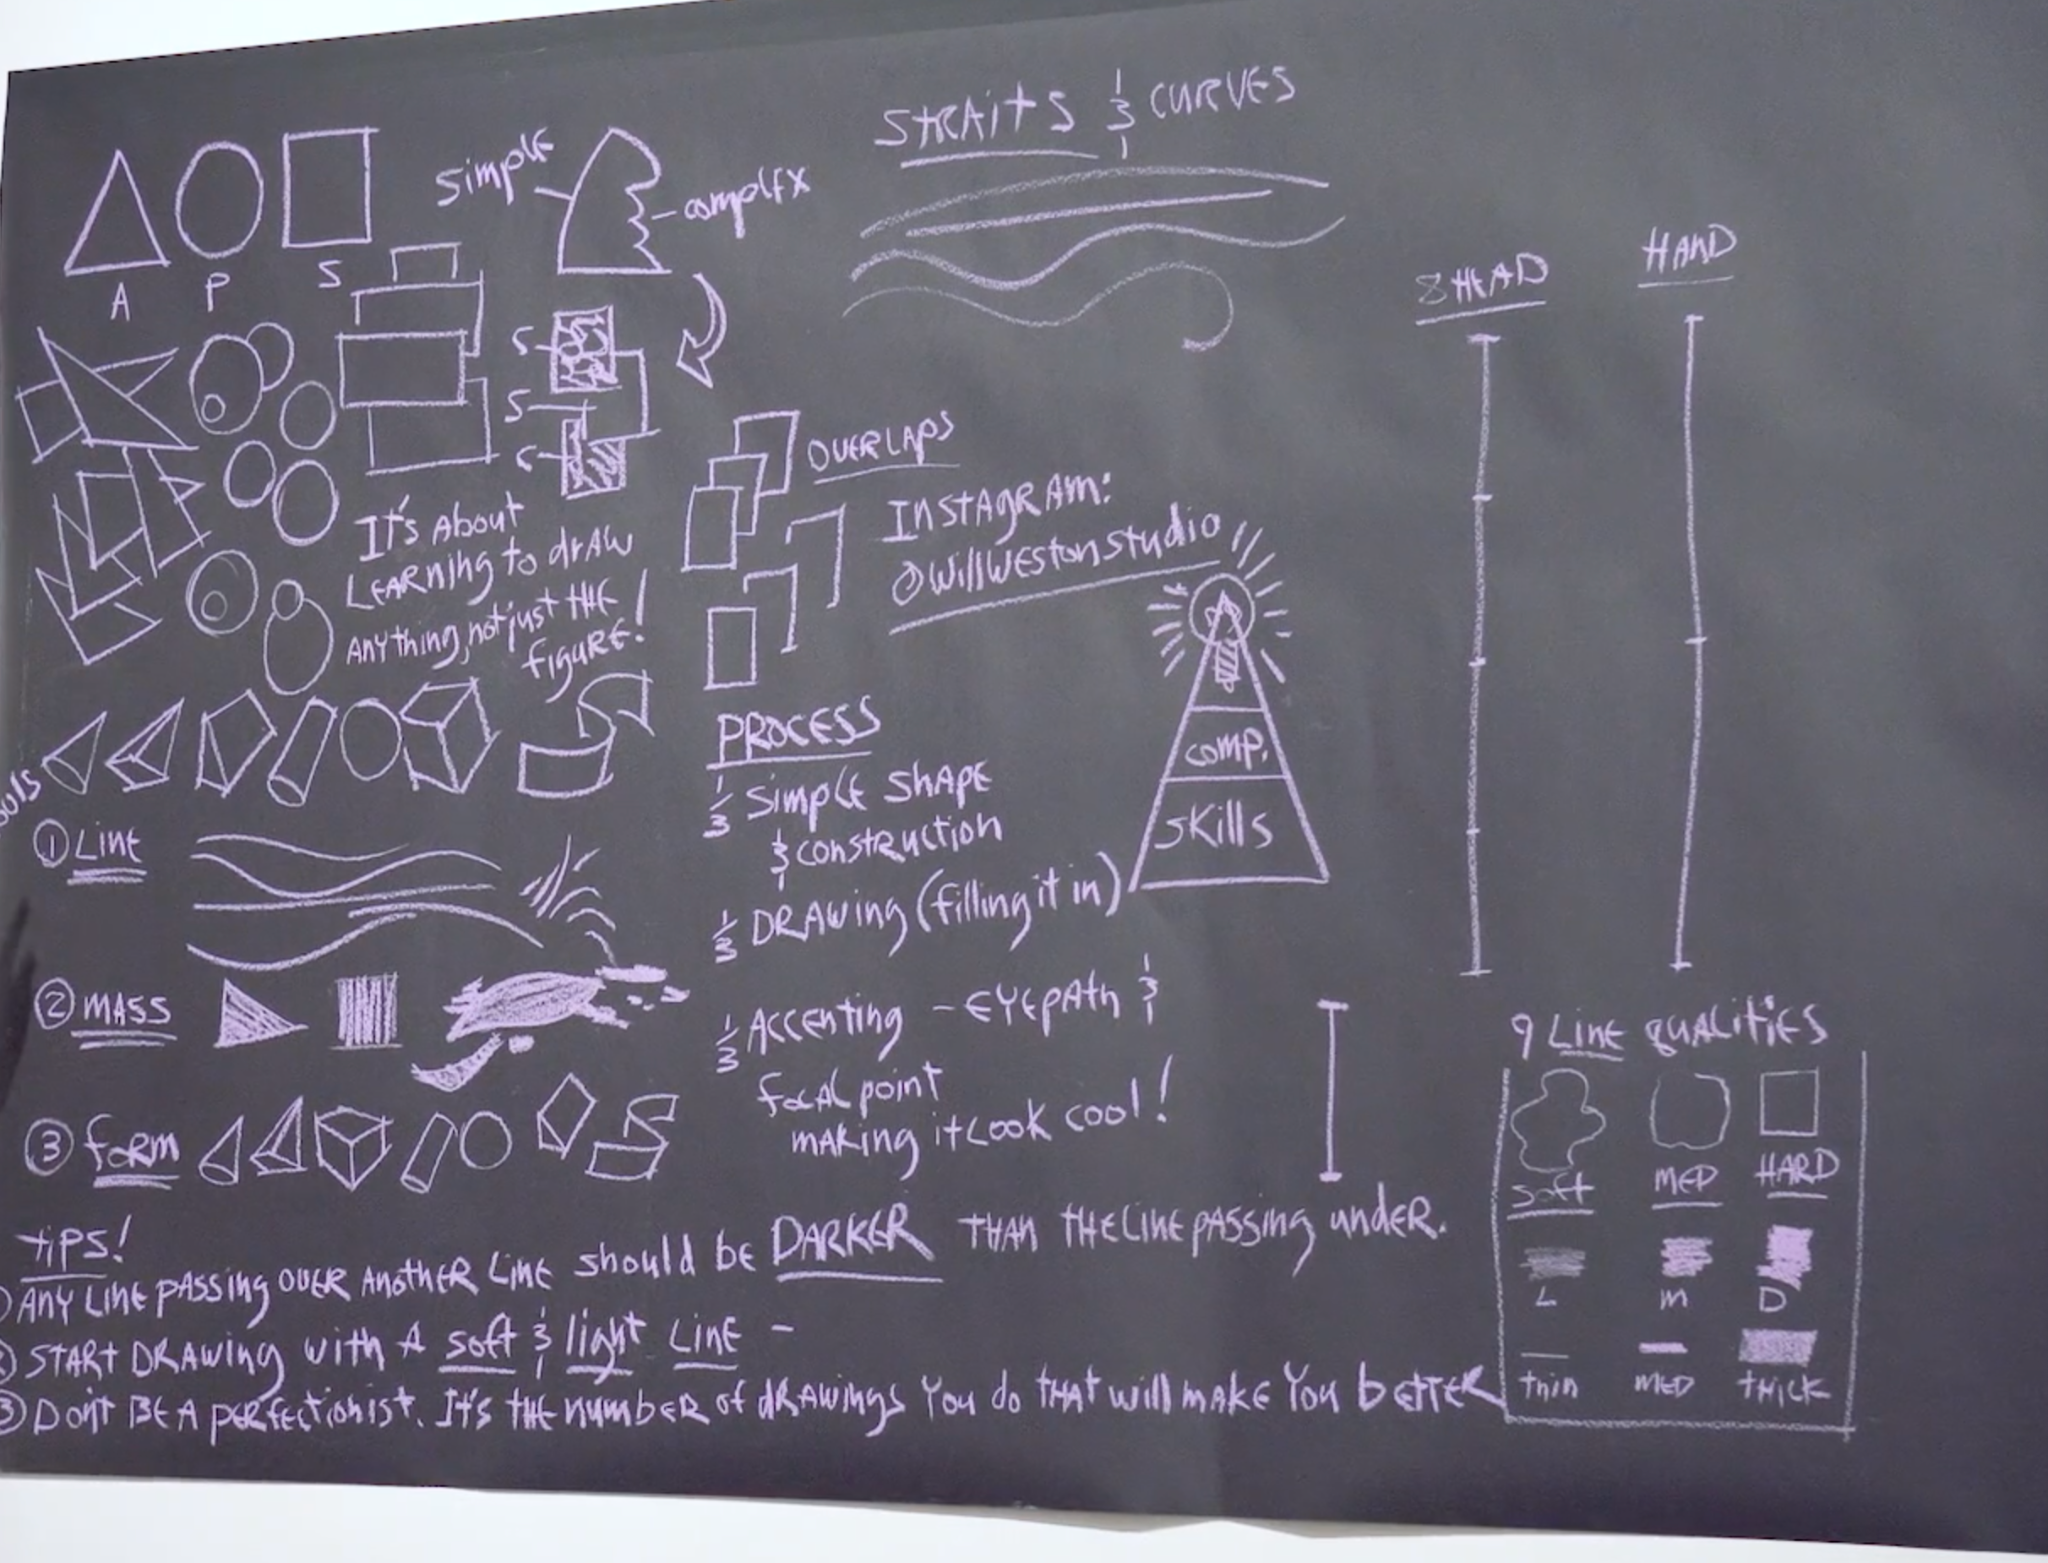 STRAITS & CURVES
simple
complex
A P S
S
S
C
OVERLAPS
INSTAGRAM:
@WillWestonstudio
It's About
LEARNING to drAW
Anything, not just THE
figurE!
8 HEAD
HAND
PROCESS
1/3 Simple ShAPE
& construction
1/3 DRAwing (filling it in)
1/3 Accenting - EyEpath &
focal point
mAking it Look cool!
comp.
skills
① LinE
② MASS
③ form
9 LinE quALitiES
Soft MED HARD
L M D
thin MED tHiCK
tiPS!
Any LinE pAssing ovER AnotHER LinE should be DARKER THAn tHE LinE pAssing undER.
② START DRAwing with A soft & light LinE -
③ Don't BE A pERfEctionist. It's tHE numbER of drAwings You do tHAt will mAkE You bEttER